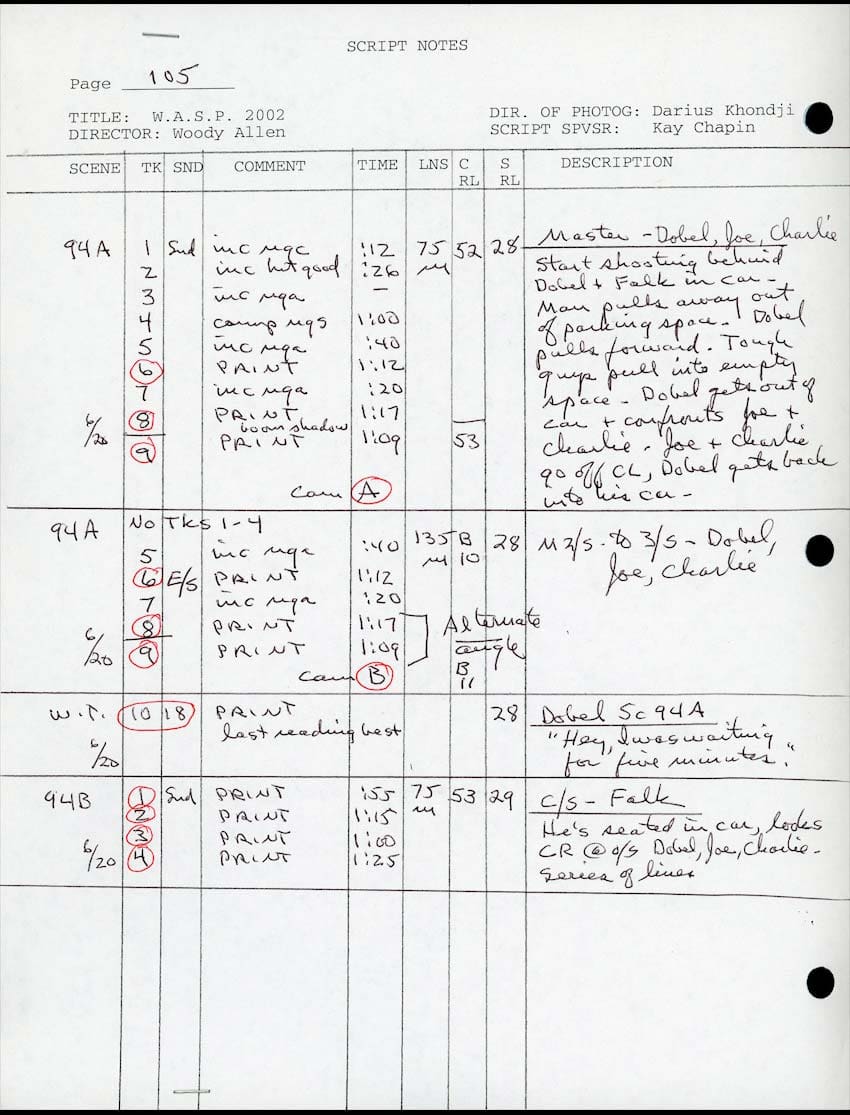 SCRIPT NOTES
Page 105
TITLE: W.A.S.P. 2002
DIRECTOR: Woody Allen
DIR. OF PHOTOG: Darius Khondji
SCRIPT SPVSR: Kay Chapin
SCENE TK SND COMMENT TIME LNS C RL S RL DESCRIPTION
94A 1 Snd inc ngc :12 75 m 52 28 Master - Dobel, Joe, Charlie
2 inc but good :26 Start shooting behind
Dobel + Falk in car -
3 inc nga — Man pulls away out
4 comp ngs 1:00 of parking space - Dobel
5 inc nga :40 pulls forward. Tough
6 PRINT 1:12 guys pull into empty
7 inc nga :20 space - Dobel gets out of
8 PRINT 1:17 car + confronts Joe +
boom shadow
6/20 9 PRINT 1:09 53 Charlie. Joe + Charlie
go off CL, Dobel gets back
cam A into his car -
94A No TKs 1-4
5 inc nga :40 135 m B 10 28 M 2/s - to 3/s - Dobel,
6 E/S PRINT 1:12 Joe, Charlie
7 inc nga :20
8 PRINT 1:17 Alternate
6/20 9 PRINT 1:09 angle
cam B B 11
W.T. 10 18 PRINT 28 Dobel Sc 94A
last reading best "Hey, I was waiting
6/20 for five minutes."
94B 1 Snd PRINT :55 75 m 53 29 C/S - Falk
2 PRINT 1:15
3 PRINT 1:00 He's seated in car, looks
6/20 4 PRINT 1:25 CR @ o/s Dobel, Joe, Charlie -
Series of lines